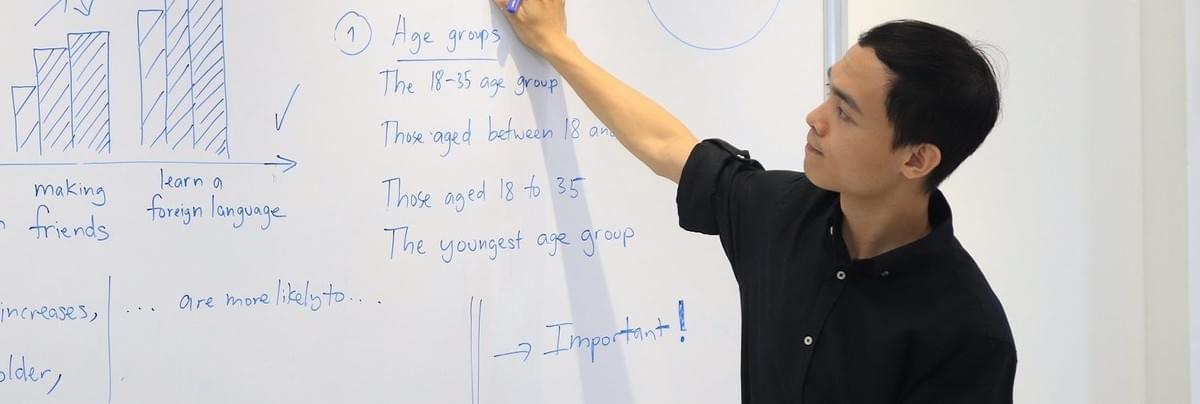 making
friends
learn a
foreign language
increases,
... are more likely to...
1 Age groups
The 18-35 age group
Those aged between 18 and
Those aged 18 to 35
The youngest age group
→ Important!